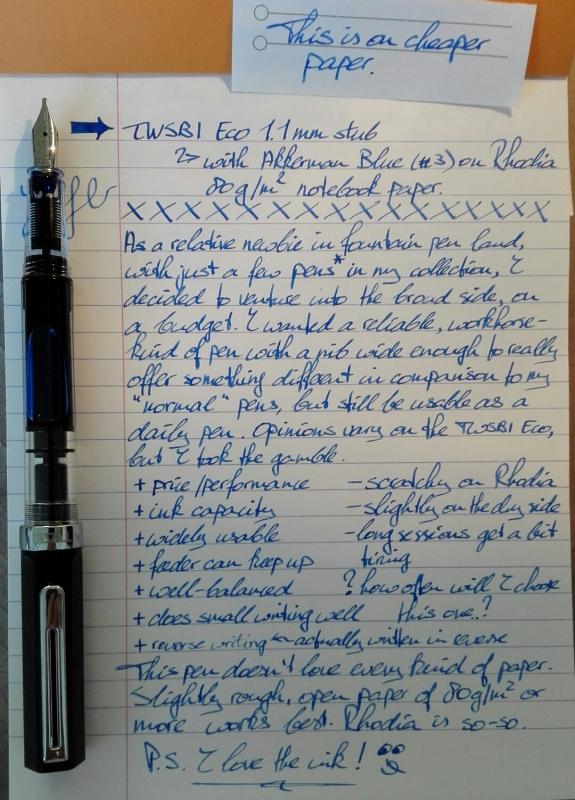 This is on cheaper
paper.
TWSBI Eco 1.1mm stub
↳ with Akkerman Blue (#3) on Rhodia
80g/m² notebook paper.
XXXXXXXXXXXXXXXXXX
As a relative newbie in fountain pen land,
with just a few pens* in my collection, I
decided to venture into the broad side, on
a budget. I wanted a reliable, workhorse-
kind of pen with a nib wide enough to really
offer something different in comparison to my
"normal" pens, but still be usable as a
daily pen. Opinions vary on the TWSBI Eco,
but I took the gamble.
+ price/performance - scratchy on Rhodia
+ ink capacity - slightly on the dry side
+ widely usable - long sessions get a bit
+ feeder can keep up tiring
+ well-balanced ? how often will I choose
+ does small writing well this one..?
+ reverse writing ← actually written in reverse
This pen doesn't love every kind of paper.
Slightly rough, open paper of 80g/m² or
more works best. Rhodia is so-so.
P.S. I love the ink!